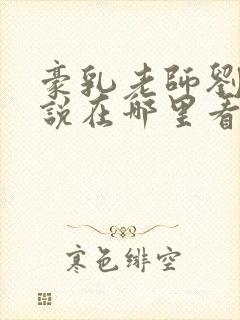 豪乳老師劉
說在哪里看
寒色緋空